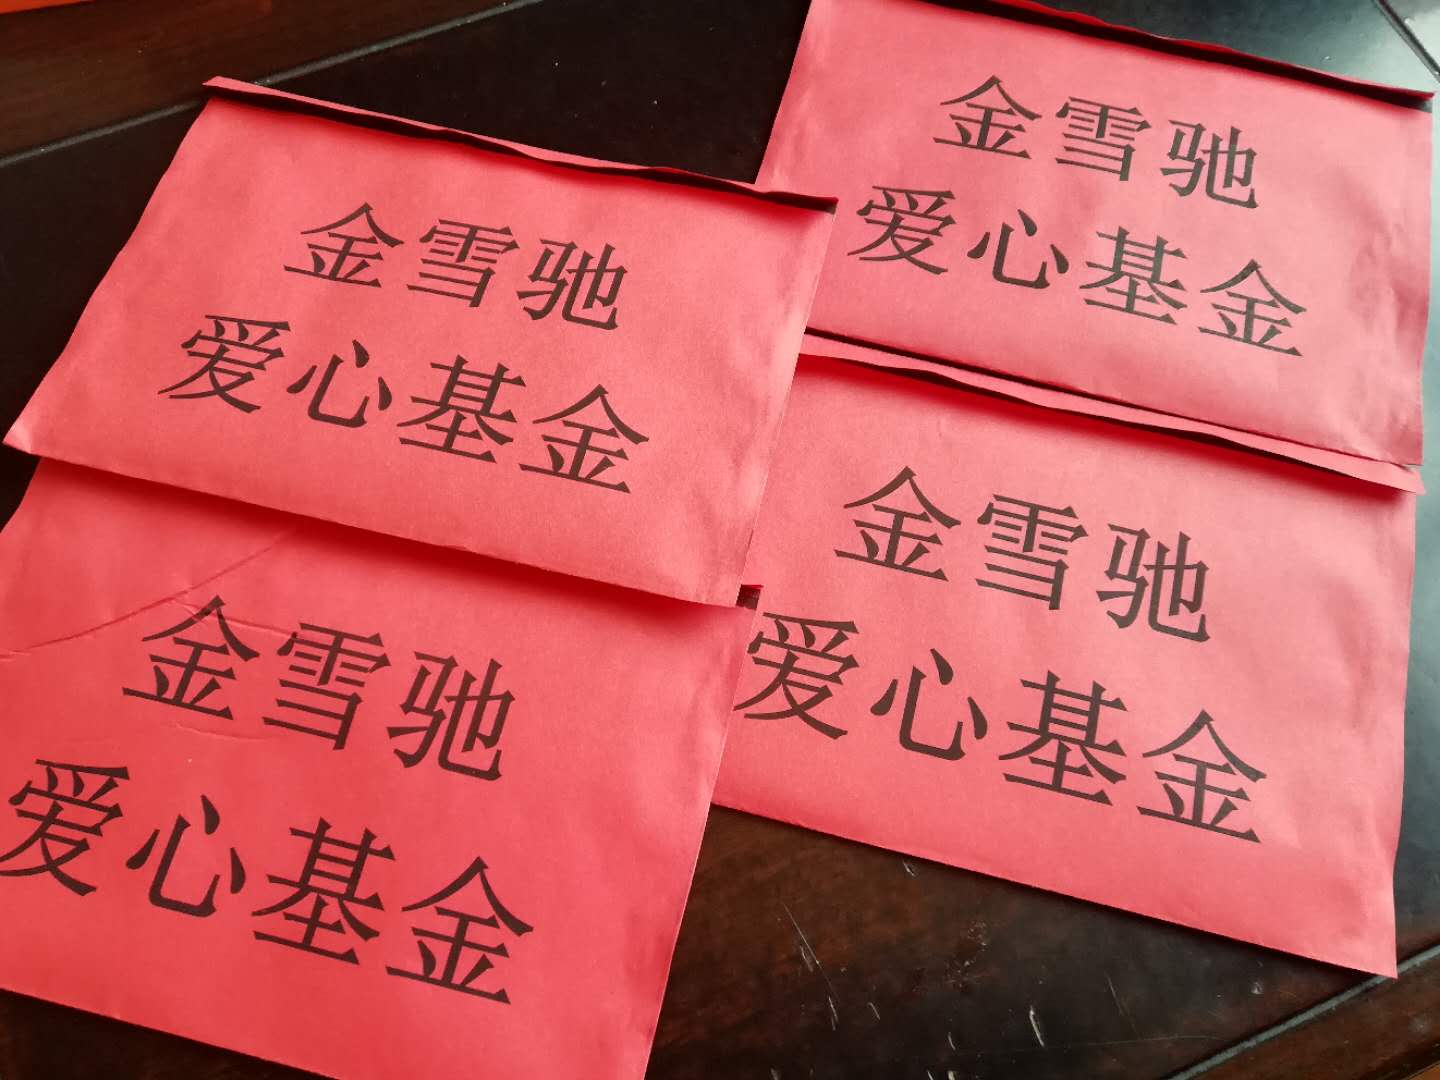 金雪驰
爱心基金
金雪驰
爱心基金
金雪驰
爱心基金
金雪驰
爱心基金